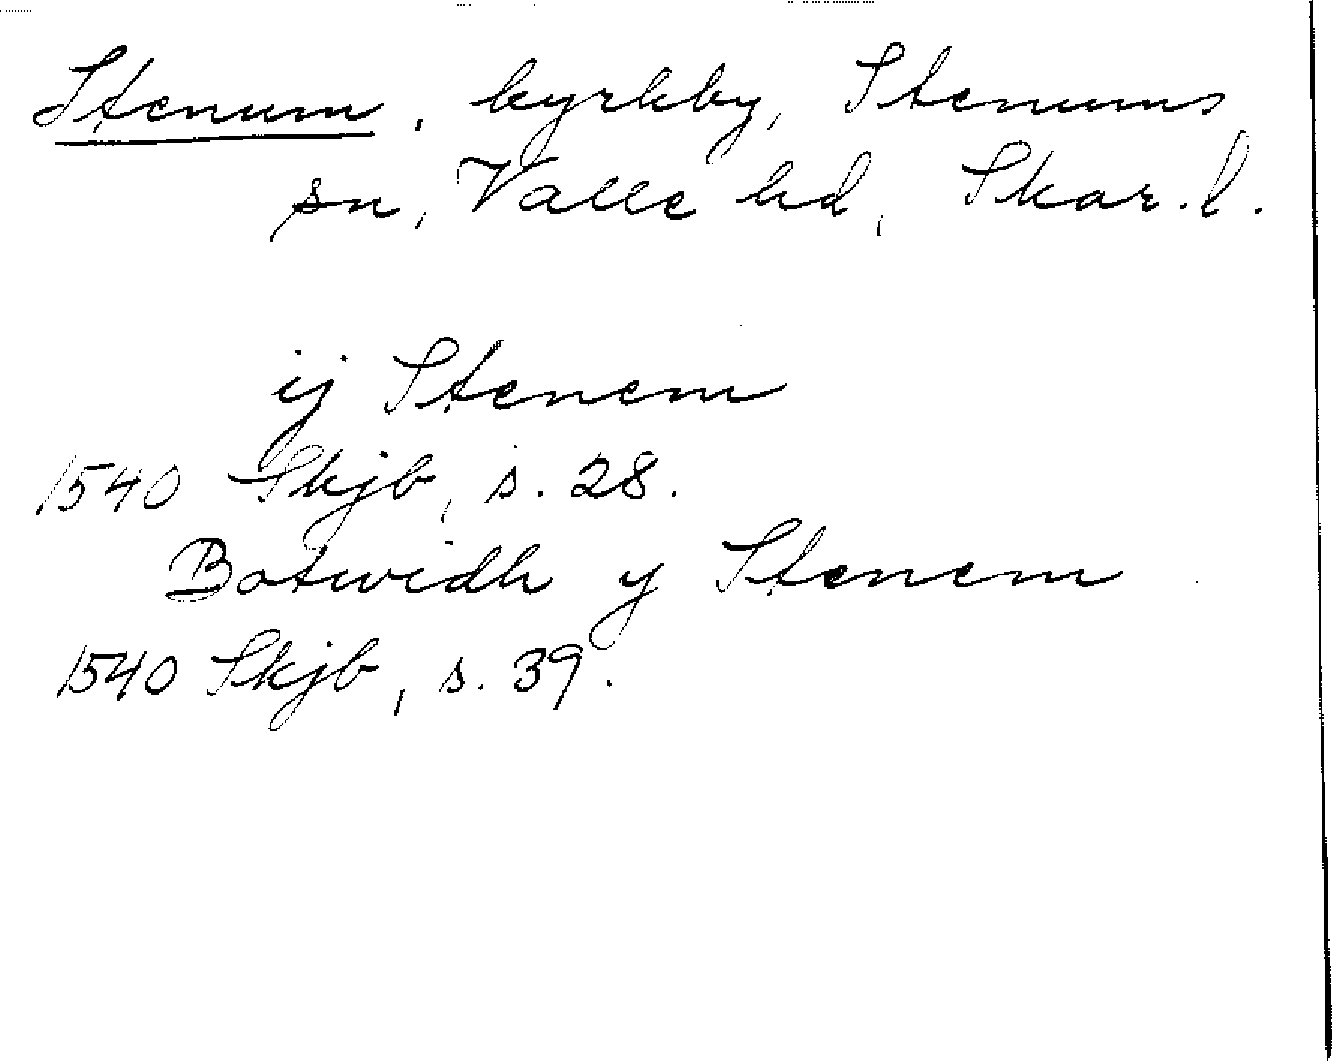 Stenum, kyrkby, Stenums
sn, Valle hd, Skar. l.
ij Stenem
1540 Skjb, s. 28.
Botwidh y Stenem
1540 Skjb, s. 39.